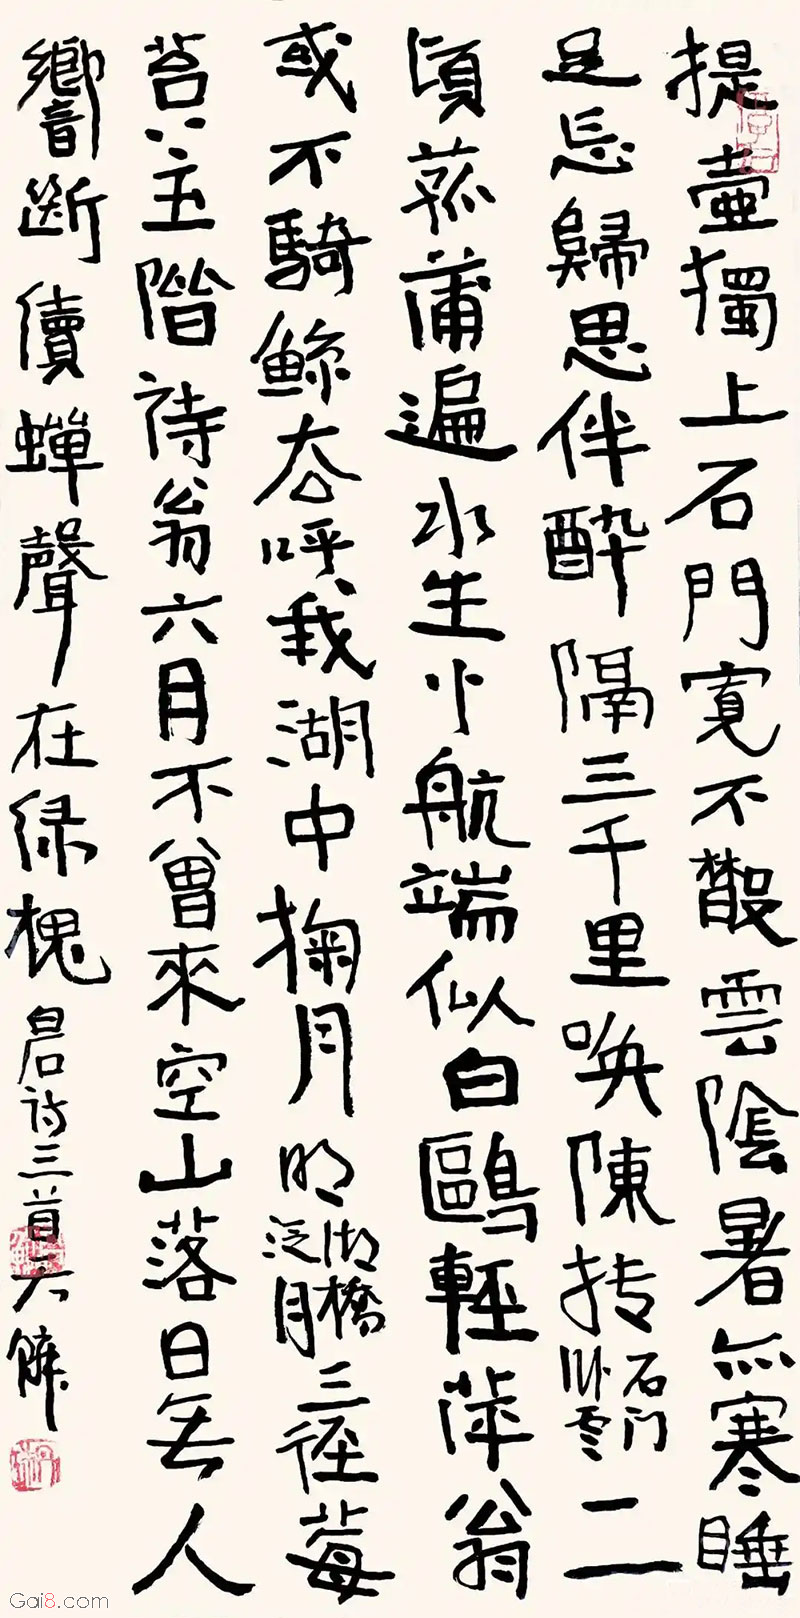 提壺獨上石門寬不散雲陰暑亦寒睡
足忘歸思伴醉隔三千里喚陳抟 石门卧雲 二
頃菰蒲遍水生小航端似白鷗輕萍翁
或不騎鯨去呼我湖中掬月明 湖橋泛月 三徑莓
苔玉階待翁六月不曾來空山落日無人
響斷續蟬聲在緑槐 诗三首
Gai8.com